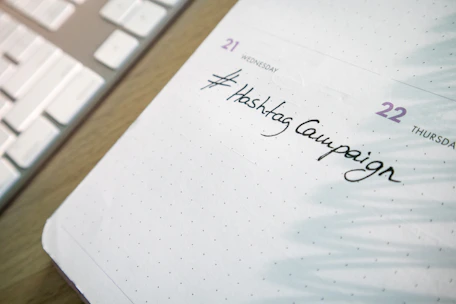 21
WEDNESDAY
#Hashtag Campaign
22
THURSDA